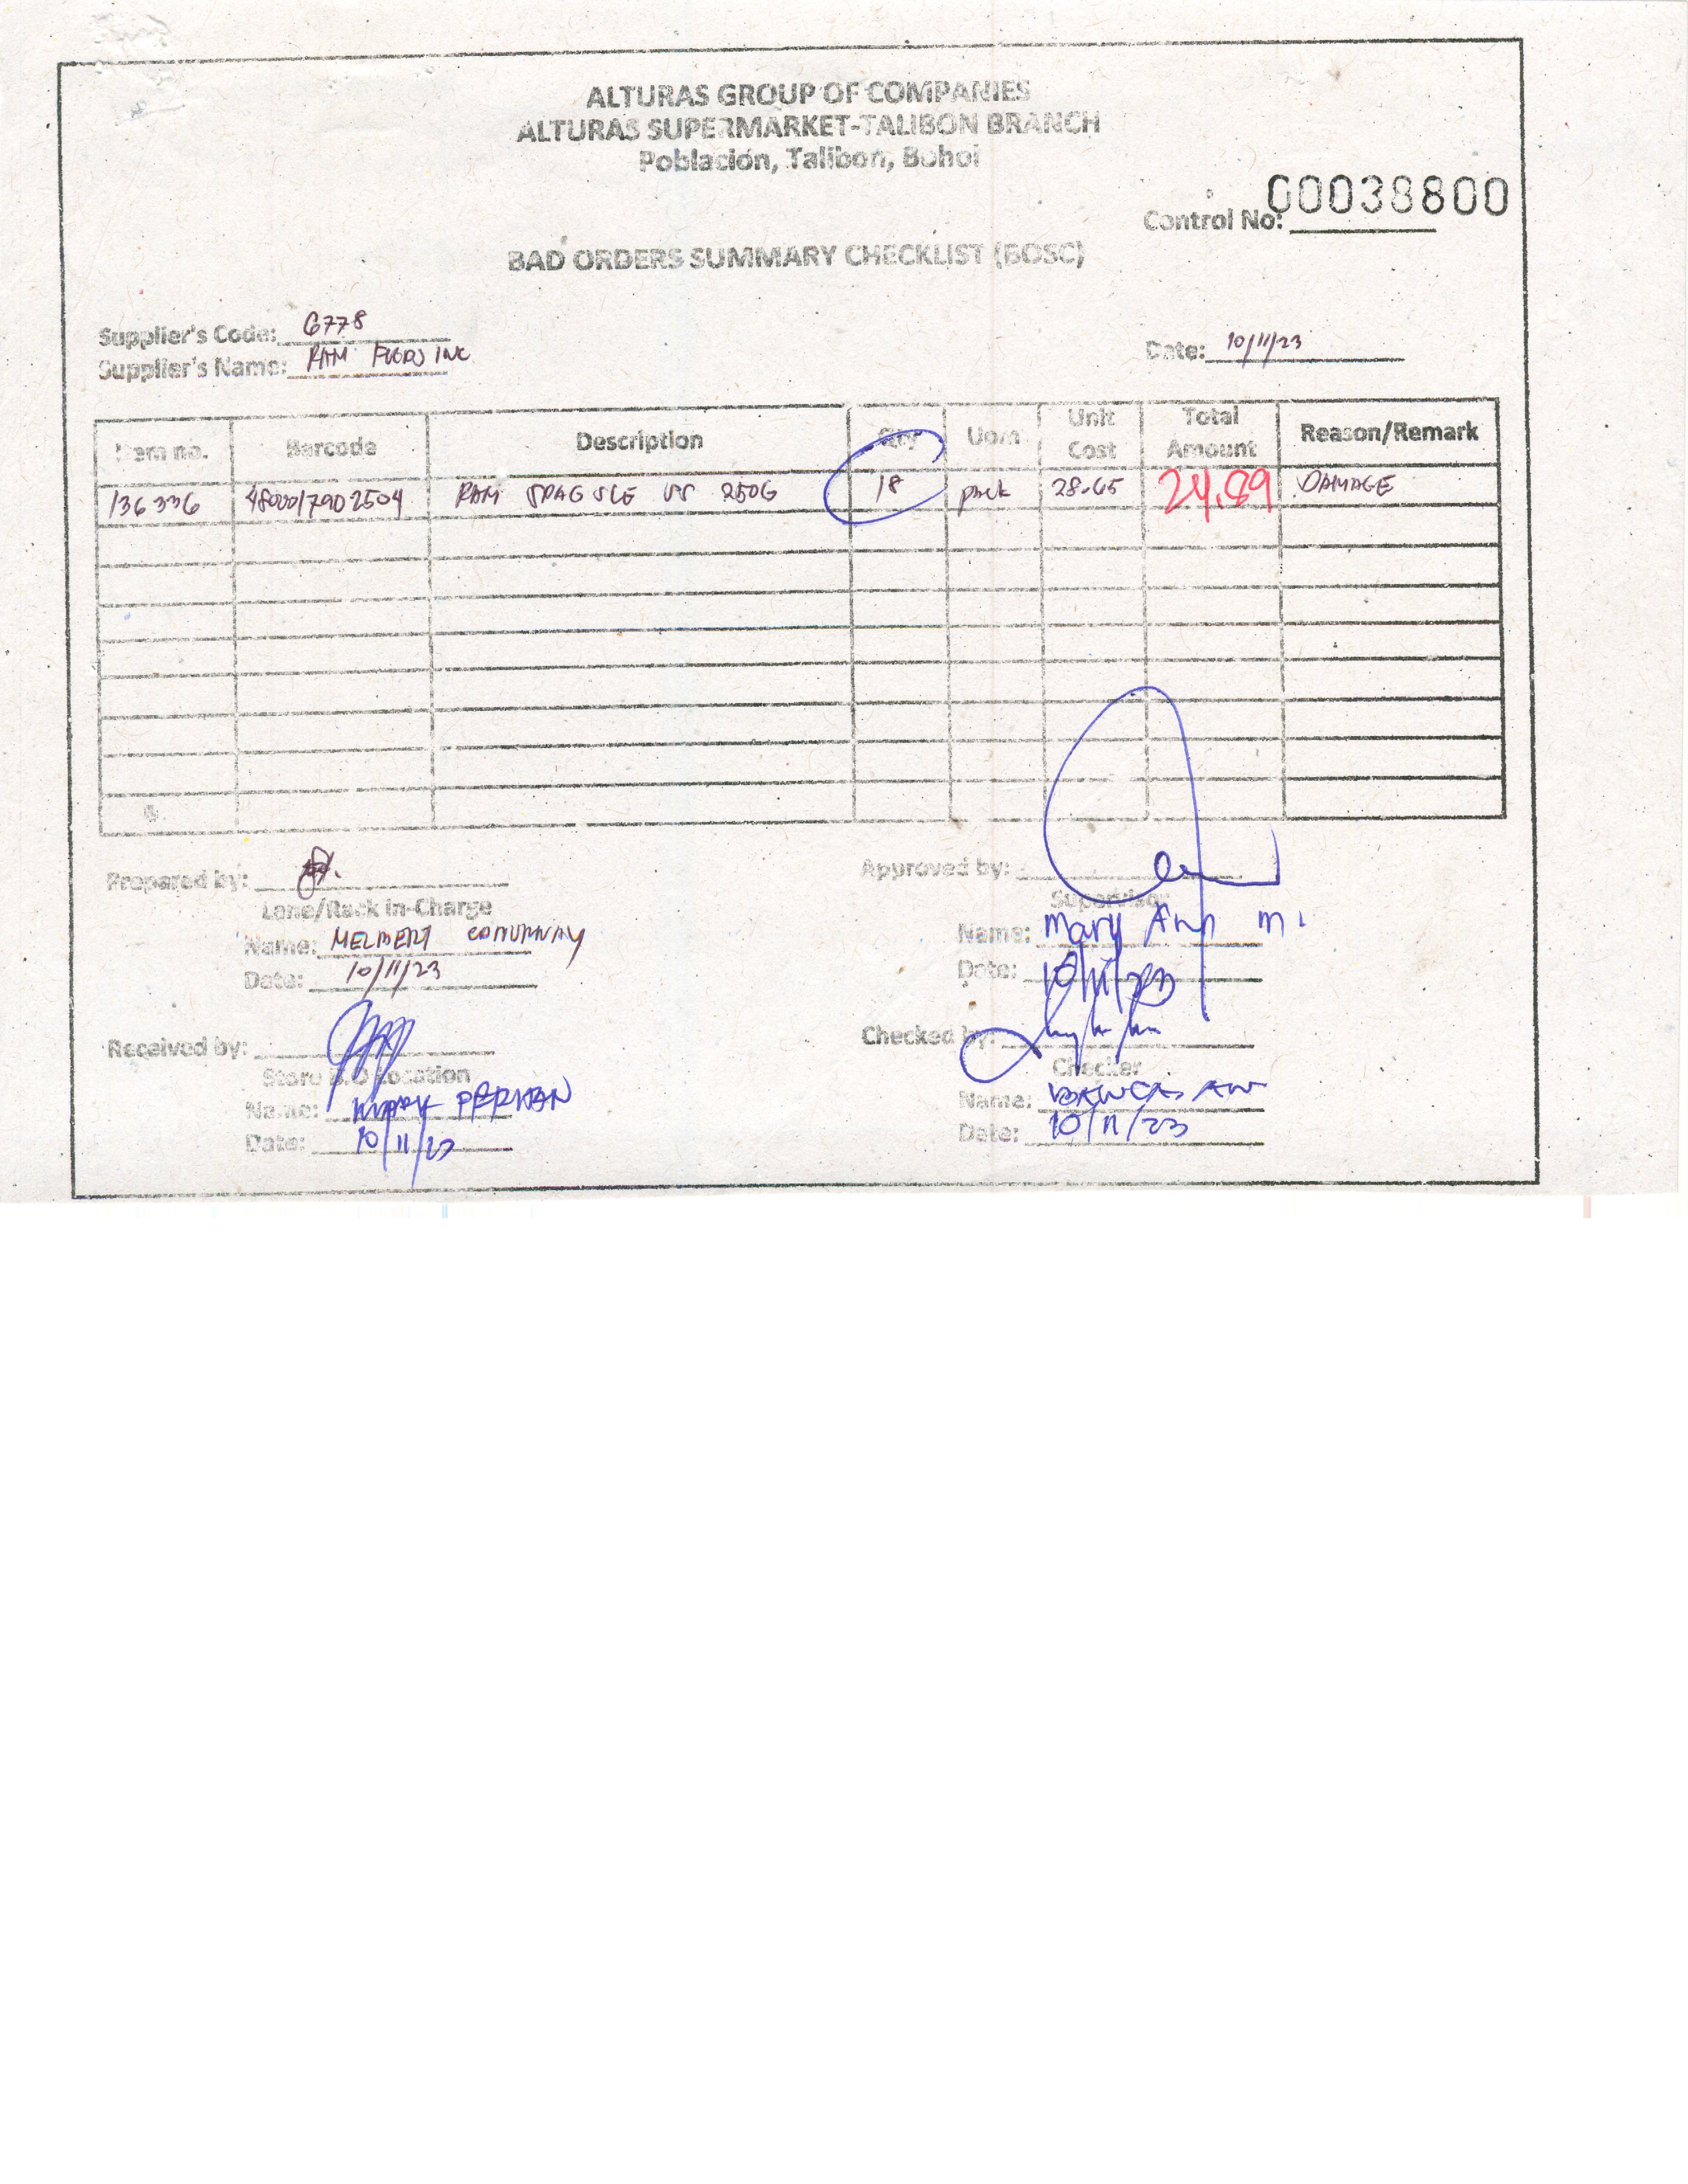 ALTURAS GROUP OF COMPANIES
ALTURAS SUPERMARKET-TALIBON BRANCH
Población, Talibon, Bohol
Control No: 00038800
BAD ORDERS SUMMARY CHECKLIST (BOSC)
Supplier's Code: 6778
Supplier's Name: RAM FOODS INC
Date: 10/11/23
Item no. Barcode Description Qty Uom Unit Cost Total Amount Reason/Remark
136336 4800017902504 RAM SPAG SCE 250G 18 pack 28.65 24.89 DAMAGE
Prepared by:
Lane/Rack In-Charge
Name: MELBERT
Date: 10/11/23
Approved by:
Supervisor
Name: Mary Ann M.
Date: 10/11/23
Received by:
Store B.O Location
Name: MARK
Date: 10/11/23
Checked by:
Checker
Name:
Date: 10/11/23